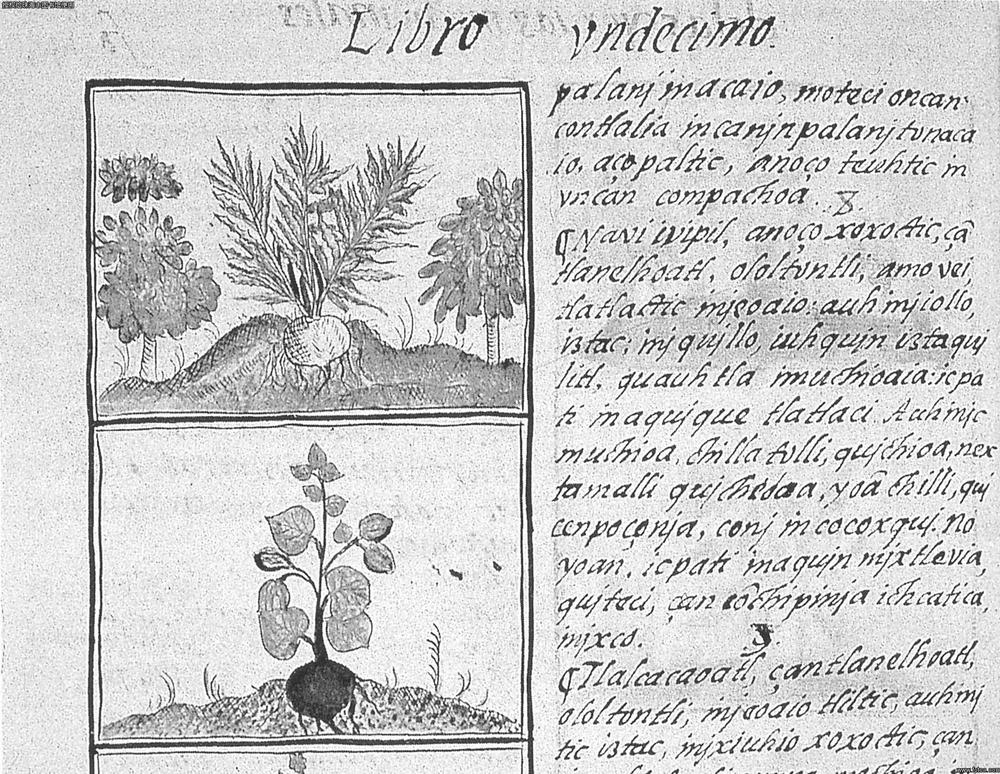 Libro yndecimo.
palanj inacaio, moteci oncan
contlalia in canjn palanj tunaca
io, aço paltic, anoço teuhtic in
vncan compachoa. 8.
¶ Navi ivipil, anoço xoxoctic, çã
tlanelhoatl, ololtuntli, amo vei,
tlatlactic mjeoaio: auh inj iollo,
iztac: inj quijllo, iuhquin iztaqui
litl, quauhtla muchioaia: ic pa
ti in aqujque tlatlaci. Auh injc
muchioa, chilla tulli, qujchioa, nex
tamalli qujchioaa, yoã chilli, qui
cenpoçonja, conj in cocoxquj. No
yoan, ic pati in aqujn mjxtlevia,
qujteci, çan cõchipinja ichcatica,
injxco. 9.
¶ Tlalcacaoatl, çan tlanelhoatl,
ololtontli, mjeoaio tliltic, auh inj
tic iztac, injxiuhio xoxoctic, çan